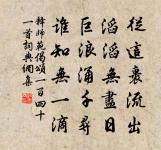 從這裏流出
滔滔無盡日
巨浪涌千尋
誰知無一滴
釋師範偈頌一百四十
一首詞典網集